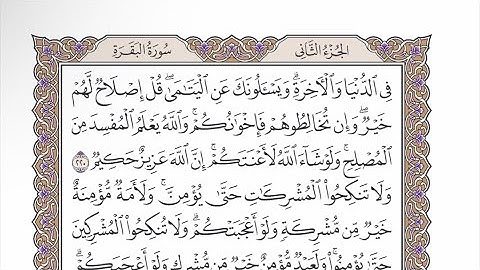 سُورَةُ البَقَرَةِ الجُزْءُ الثَّانِى
فِى ٱلدُّنْيَا وَٱلْأَخِرَةِ ۗ وَيَسْـَٔلُونَكَ عَنِ ٱلْيَتَـٰمَىٰ ۖ قُلْ إِصْلَاحٌ لَّهُمْ
خَيْرٌ ۖ وَإِن تُخَالِطُوهُمْ فَإِخْوَٰنُكُمْ ۚ وَٱللَّهُ يَعْلَمُ ٱلْمُفْسِدَ مِنَ
ٱلْمُصْلِحِ ۚ وَلَوْ شَآءَ ٱللَّهُ لَأَعْنَتَكُمْ ۚ إِنَّ ٱللَّهَ عَزِيزٌ حَكِيمٌ ٢٢٠
وَلَا تَنكِحُوا۟ ٱلْمُشْرِكَـٰتِ حَتَّىٰ يُؤْمِنَّ ۚ وَلَأَمَةٌ مُّؤْمِنَةٌ
خَيْرٌ مِّن مُّشْرِكَةٍ وَلَوْ أَعْجَبَتْكُمْ ۗ وَلَا تُنكِحُوا۟ ٱلْمُشْرِكِينَ
حَتَّىٰ يُؤْمِنُوا۟ ۚ وَلَعَبْدٌ مُّؤْمِنٌ خَيْرٌ مِّن مُّشْرِكٍ وَلَوْ أَعْجَبَكُمْ ۗ